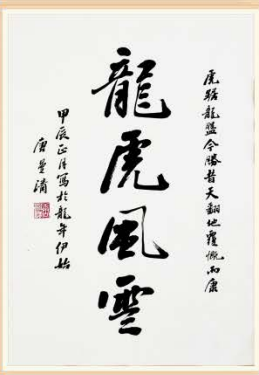 虎踞龍盤今勝昔天翻地覆慨而康
龍虎風雲
甲辰正月寫於龍年伊始